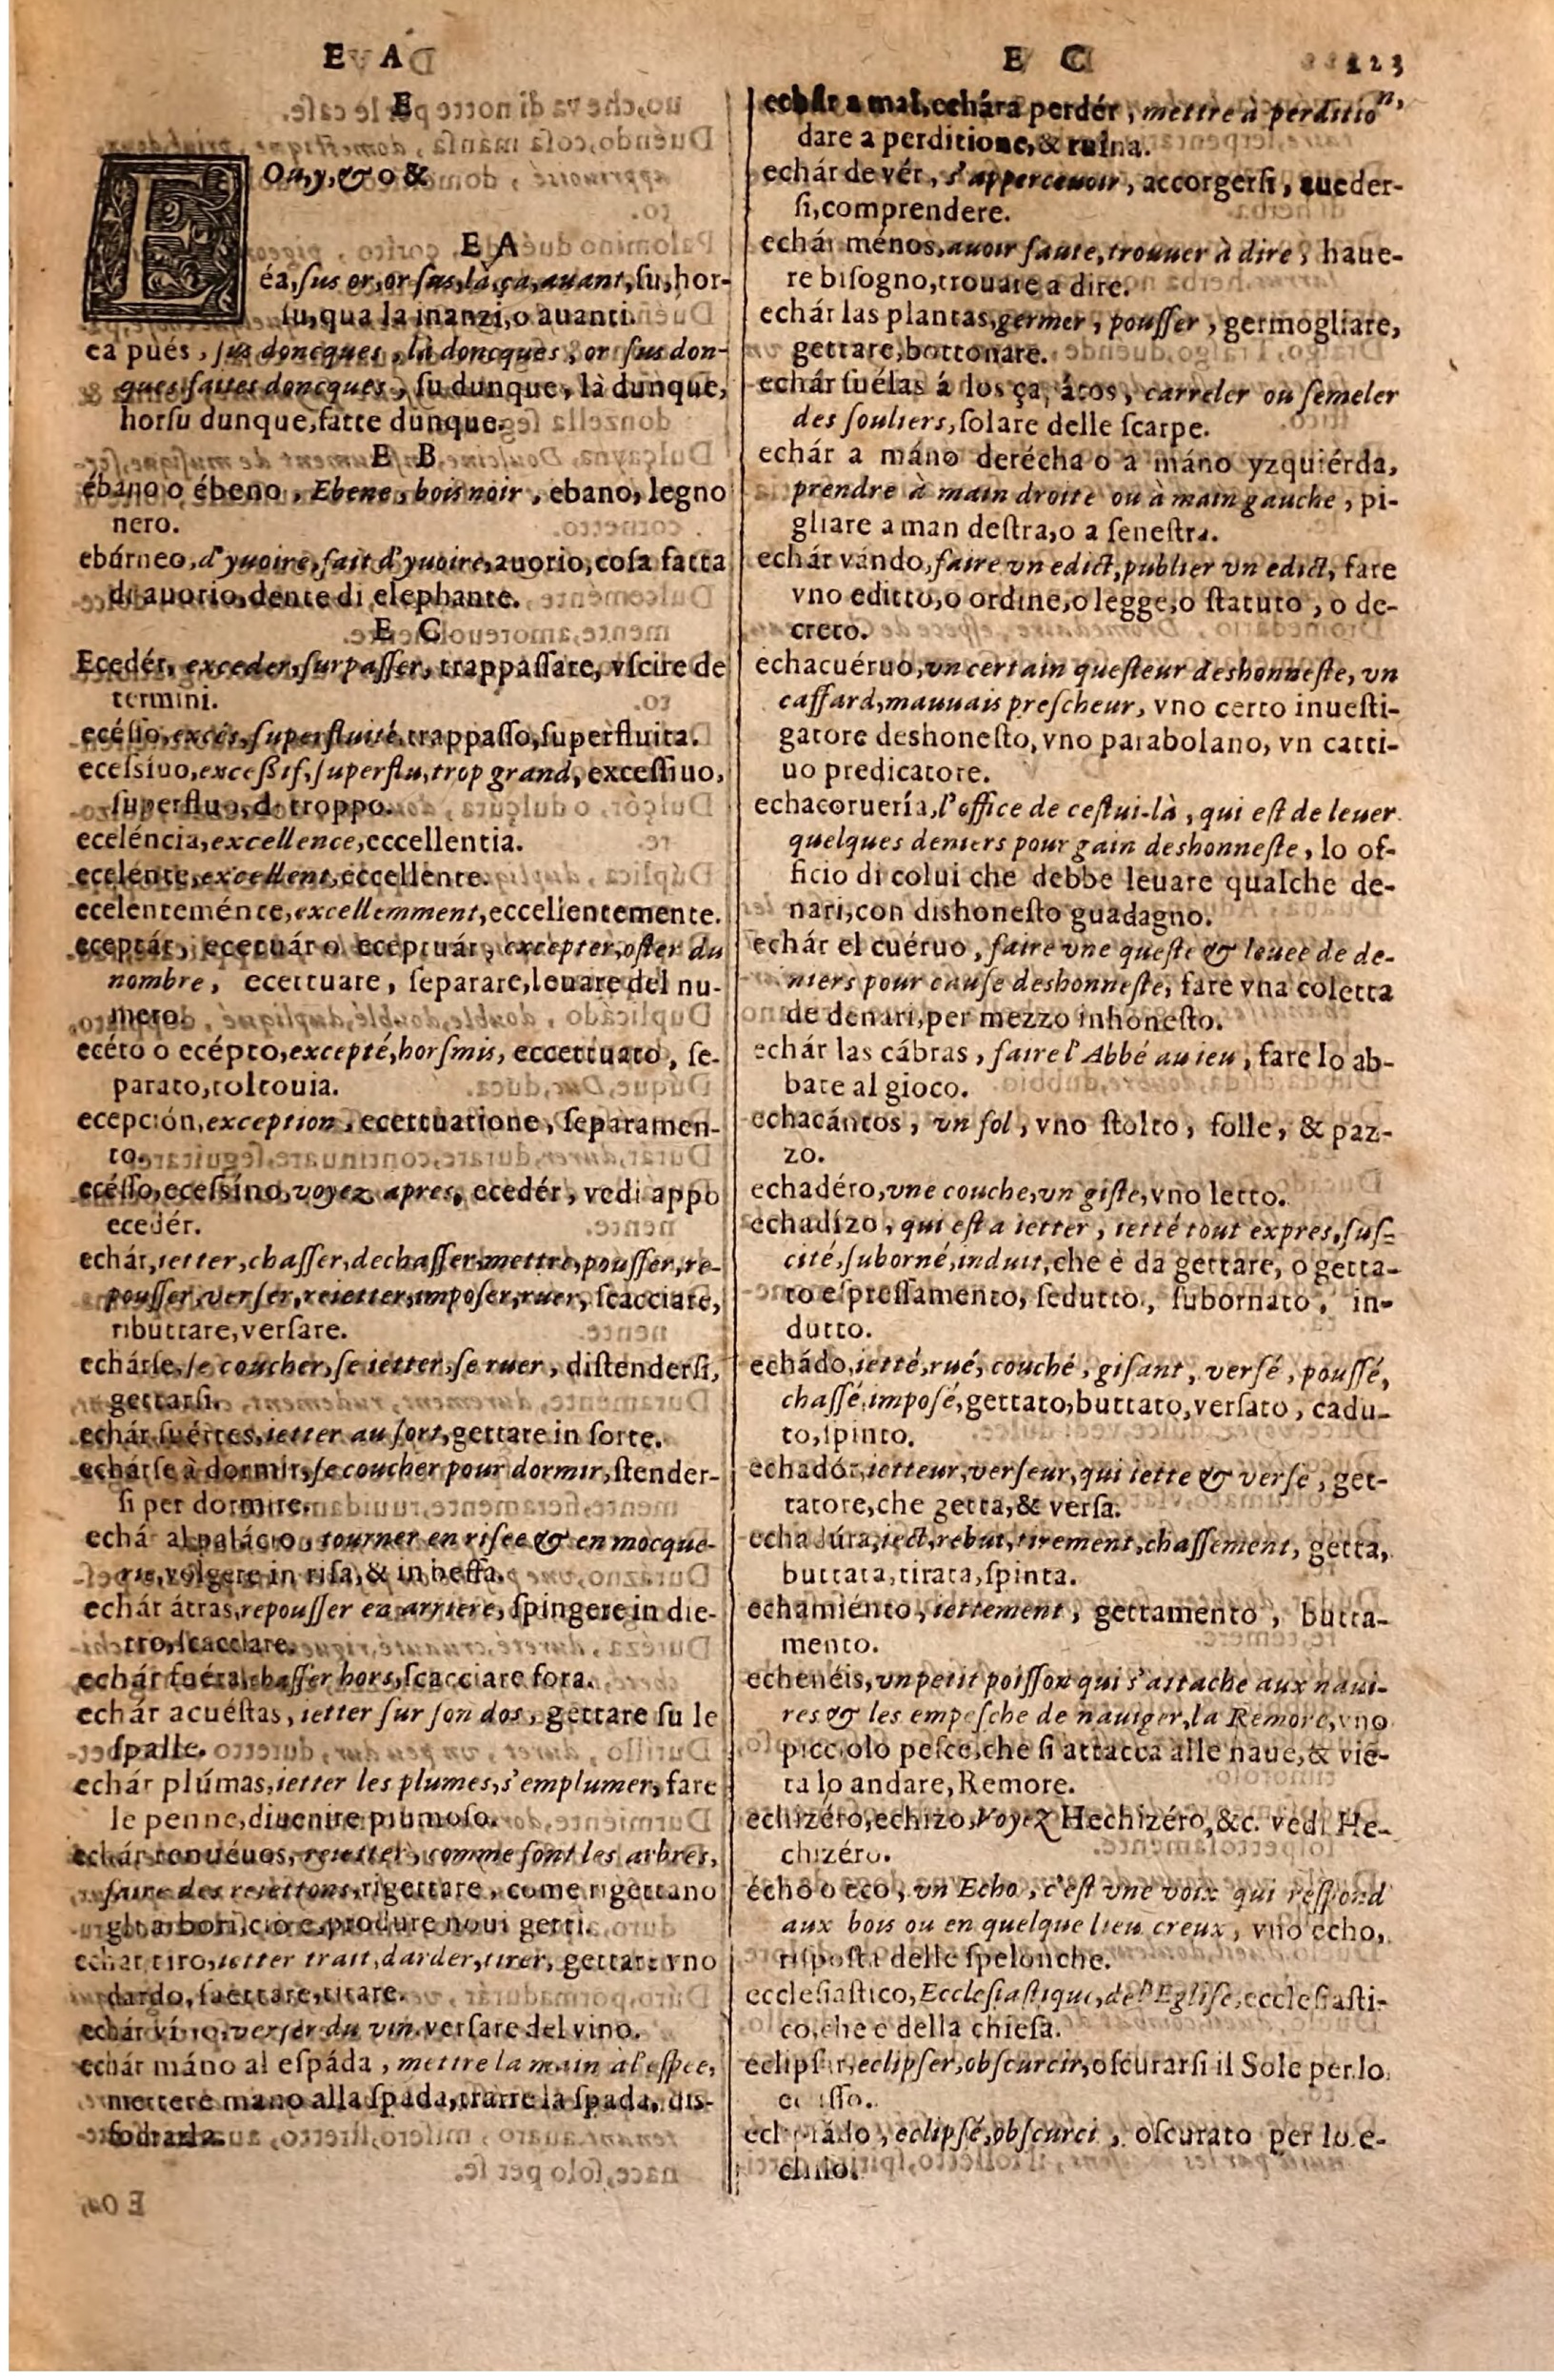 E A
E
E Ou, y, & o &
E A
éa, ſus or, or ſus, là, ça, auant, ſu, hor-
ſu, qua la inanzi, o auanti.
ea pués, ſus doncques, là doncques, or ſus don-
ques faites doncques, ſu dunque, là dunque,
horſu dunque, fatte dunque.
E B
ébano o ébeno, Ebene, bois noir, ebano, legno
nero.
ebúrneo, d'yuoire, fait d'yuoire, auorio, coſa fatta
di auorio, dente di elephante.
E C
Ecedér, exceder, ſurpaſſer, trappaſſare, vſcire de
termini.
ecéſſo, excés, ſuperfluité, trappaſſo, ſuperfluita.
eceſsiuo, exceßif, ſuperflu, trop grand, exceſſiuo,
ſuperfluo, di troppo.
eceléncia, excellence, eccellentia.
ecelénte, excellent, eccellente.
ecelenteménte, excellemment, eccellentemente.
eceptár, ecetuár o eceptuár, excepter, oſter du
nombre, ecettuare, ſeparare, leuare del nu-
mero.
ecéto o ecépto, excepté, horſmis, eccettuato, ſe-
parato, toltouia.
ecepción, exception, ecettuatione, ſeparamen-
to.
ecéſſo, eceſsíno, voyez apres, ecedér, vedi appo
ecedér.
echár, ietter, chaſſer, dechaſſer, mettre, pouſſer, re-
pouſſer, verſer, reietter, impoſer, ruer, ſcacciare,
ributtare, verſare.
echárſe, ſe coucher, ſe ietter, ſe ruer, diſtenderſi,
gettarſi.
echár ſuértes, ietter au ſort, gettare in ſorte.
echárſe à dormir, ſe coucher pour dormir, ſtender-
ſi per dormire.
echár al palácio, tourner en riſee & en mocque-
rie, volgere in riſa, & in beffa.
echár átras, repouſſer en arriere, ſpingere in die-
tro, ſcacciare.
echár fuéra, chaſſer hors, ſcacciare fora.
echár acuéſtas, ietter ſur ſon dos, gettare ſu le
ſpalle.
echár plúmas, ietter les plumes, s'emplumer, fare
le penne, diuenire piumoſo.
echár renuéuos, reietter, comme font les arbres,
faire des reiettons, rigettare, come rigettano
gli arbori, cioè, produre noui getti.
echar tiro, ietter trait, darder, tirer, gettare vno
dardo, ſaettare, titare.
echár víno, verſer du vin, verſare del vino.
echár máno al eſpáda, mettre la main à l'eſpee,
mettere mano alla ſpada, trarre la ſpada, diſ-
fodrarla.
E Ou,
E C 123
echár a mal, echára perdér, mettre à perdition,
dare a perditione, & ruina.
echár de vér, s'apperceuoir, accorgerſi, aueder-
ſi, comprendere.
echár ménos, auoir faute, trouuer à dire, haue-
re biſogno, trouare a dire.
echár las plantas, germer, pouſſer, germogliare,
gettare, bottonare.
echár ſuélas á los çapátos, carreler ou ſemeler
des ſouliers, ſolare delle ſcarpe.
echár a máno derécha o a máno yzquiérda,
prendre à main droite ou à main gauche, pi-
gliare a man deſtra, o a ſeneſtra.
echár vándo, faire vn edict, publier vn edict, fare
vno editto, o ordine, o legge, o ſtatuto, o de-
creto.
echacuéruo, vn certain queſteur deshonneſte, vn
caffard, mauuais preſcheur, vno certo inueſti-
gatore deshoneſto, vno parabolano, vn catti-
uo predicatore.
echacoruería, l'office de ceſtui-là, qui eſt de leuer
quelques deniers pour gain deshonneſte, lo of-
ficio di colui che debbe leuare qualche de-
nari, con dishoneſto guadagno.
echár el cuéruo, faire vne queſte & leuee de de-
niers pour cauſe deshonneſte, fare vna coletta
de denari, per mezzo inhoneſto.
echár las cábras, faire l'Abbé au ieu, fare lo ab-
bate al gioco.
echacántos, vn fol, vno ſtolto, folle, & paz-
zo.
echadéro, vne couche, vn giſte, vno letto.
echadízo, qui eſt a ietter, ietté tout expres, ſuſ-
cité, ſuborné, induit, che è da gettare, o getta-
to eſpreſſamento, ſedutto, ſubornato, in-
dutto.
echádo, ietté, rué, couché, giſant, verſé, pouſſé,
chaſſé, impoſé, gettato, buttato, verſato, cadu-
to, ſpinto.
echadór, ietteur, verſeur, qui iette & verſe, get-
tatore, che getta, & verſa.
echadúra, iect, rebut, tirement, chaſſement, getta,
buttata, tirata, ſpinta.
echamiénto, iettement, gettamento, butta-
mento.
echenéis, vn petit poiſſon qui s'attache aux naui-
res & les empeſche de nauiger, la Remore, vno
picciolo peſce, che ſi attacca alle naue, & vie-
ta lo andare, Remore.
echizéro, echizo, Voyez Hechizéro, &c. vedi He-
chizéro.
écho o eco, vn Echo, c'eſt vne voix qui reſpond
aux bois ou en quelque lieu creux, vno echo,
riſpoſta delle ſpelonche.
eccleſiaſtico, Eccleſiaſtique, de l'Egliſe, eccleſiaſti-
co, che e della chieſa.
eclipſar, eclipſer, obſcurcir, oſcurarſi il Sole per lo
ecliſſo.
eclipſádo, eclipſé, obſcurci, oſcurato per lo e-
cliſſo.